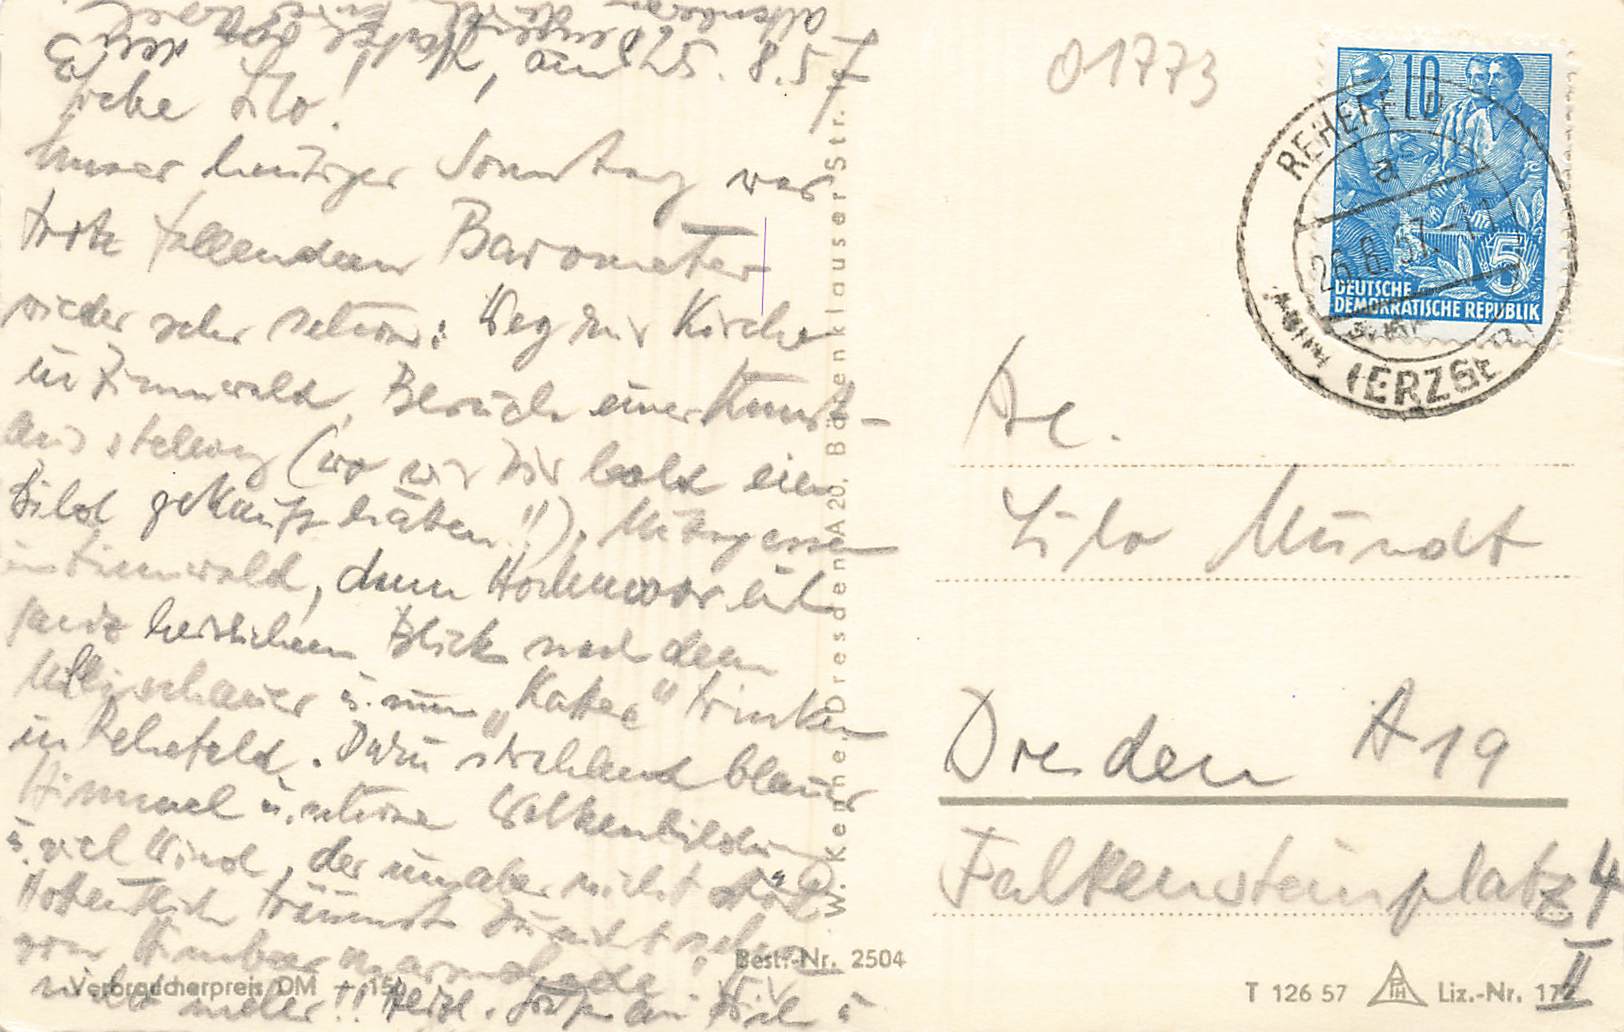 am 25. 8. 57
Liebe Lilo!
Unser heutiger Sonntag war
trotz fallendem Barometer
wieder sehr schön: Weg zur Kirche
in Zinnwald, Besuch einer Kunst-
ausstellung (wo wir Dir bald ein
Bild gekauft hätten!!), Mittagessen
in Zinnwald, dann Hochmoor mit
ganz herrlichem Blick nach dem
Milleschauer u. nun „Kaffee" trinken
in Rehefeld. Dazu strahlend blauer
Himmel u. schöne Wolkenbildung
u. viel Wind, der uns aber nicht stört.
Hoffentlich träumst Du nicht schon
von Himbeermarmelade!
nicht mehr!! Herzl. Grüße an Dich u
W. Kenner, Dresden A 20, Bärenklauser Str.
Verbraucherpreis DM -,15
Best.-Nr. 2504
01773
10
5
DEUTSCHE
DEMOKRATISCHE REPUBLIK
REHEFELD
a
26.8.57.-11
(ERZGEB)
Lilo Mundt
Dresden A 19
Falkensteinplatz 4
II
T 126 57
Liz.-Nr.